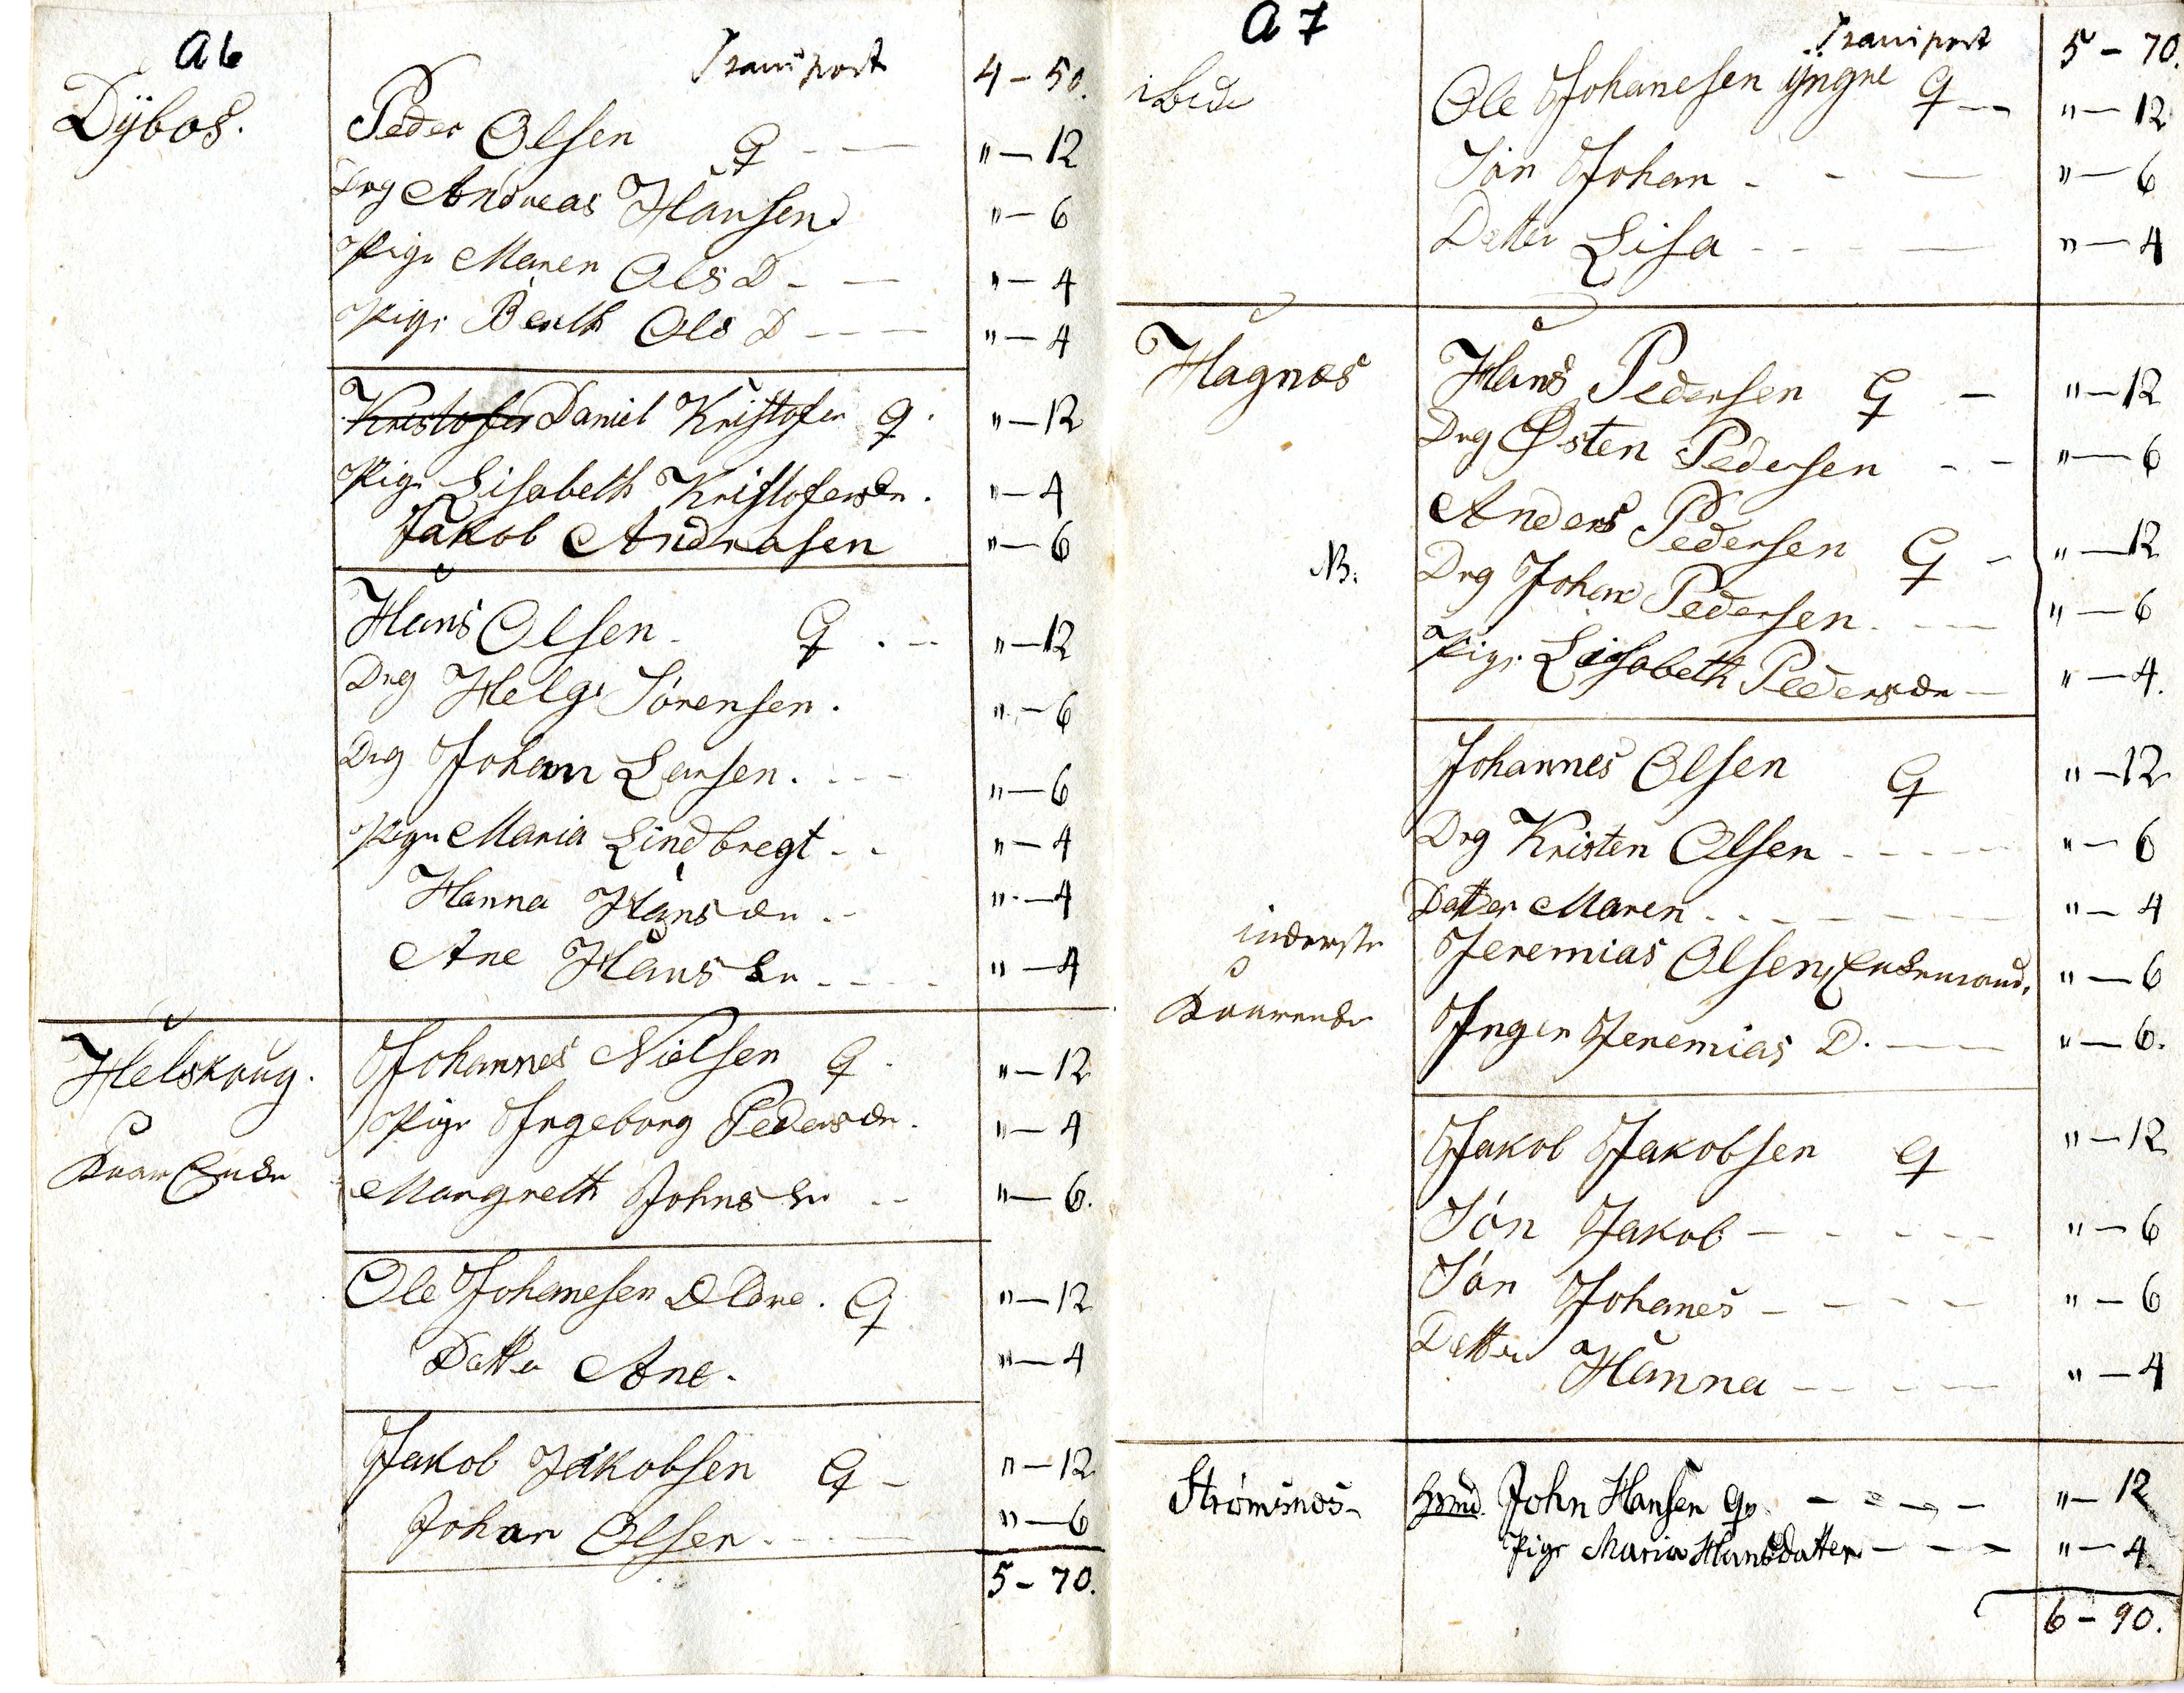 A 6
Transport 4 - 50.
Dÿbos. Peder Olsen G - — " — 12
Drg Andreas Hansen " — 6
Pige Maren Ols D - — " — 4
Pige Berth Ols D - - — " — 4
Kristofer Daniel Kristofer G. " — 12
Pige Lisabeth Kristofersdr. " — 4
Jakob Andrasen " — 6
Hans Olsen - G . - " — 12
Drg Helge Sörensen. " — 6
Drg Johan Larsen. - - " — 6
Pige Maria Lindbregt - - " — 4
Hanna Hansdr. - " — 4
Ane Hansdr - - - " — 4
Helskoug. Johannes Nielsen G. " — 12
Pige Ingeborg Pedersdr. " — 4
Margreth Johnsdr - - " — 6.
Ole Johanesen Eldre. G " — 12
Datter Ane. " — 4
Jakob Jakobsen G - " — 12
Johan Olsen. - - — " — 6
5 - 70.
A 7
Transport 5 - 70.
ibide Ole Johanesen yngre G - — " — 12
Sön Johan - - — " — 6
Datter Lisa - - - — " — 4
Hagnæs Hans Pedersen G - " — 12
Drg Østen Pedersen - - " — 6
Anders Pedersen G - " — 12
NB: Drg Johan Pedersen. - — " — 6
Pige Lisabeth Pedersdr — " — 4.
Johannes Olsen G " — 12
Drg Kristen Olsen - - - — " — 6
Datter Maren - - - - — " — 4
inderste Jeremias Olsen, Enkemand, " — 6
Inger Jeremias D. - — " — 6.
Jakob Jakobsen G " — 12
Sön Jakob - - - - " — 6
Sön Johanes - - - - " — 6
Datter Hanna - - - — " — 4
Strömsnæs - John Hansen G - - - - " — 12
Pige Maria Hansdatter - - - " — 4
6 - 90.